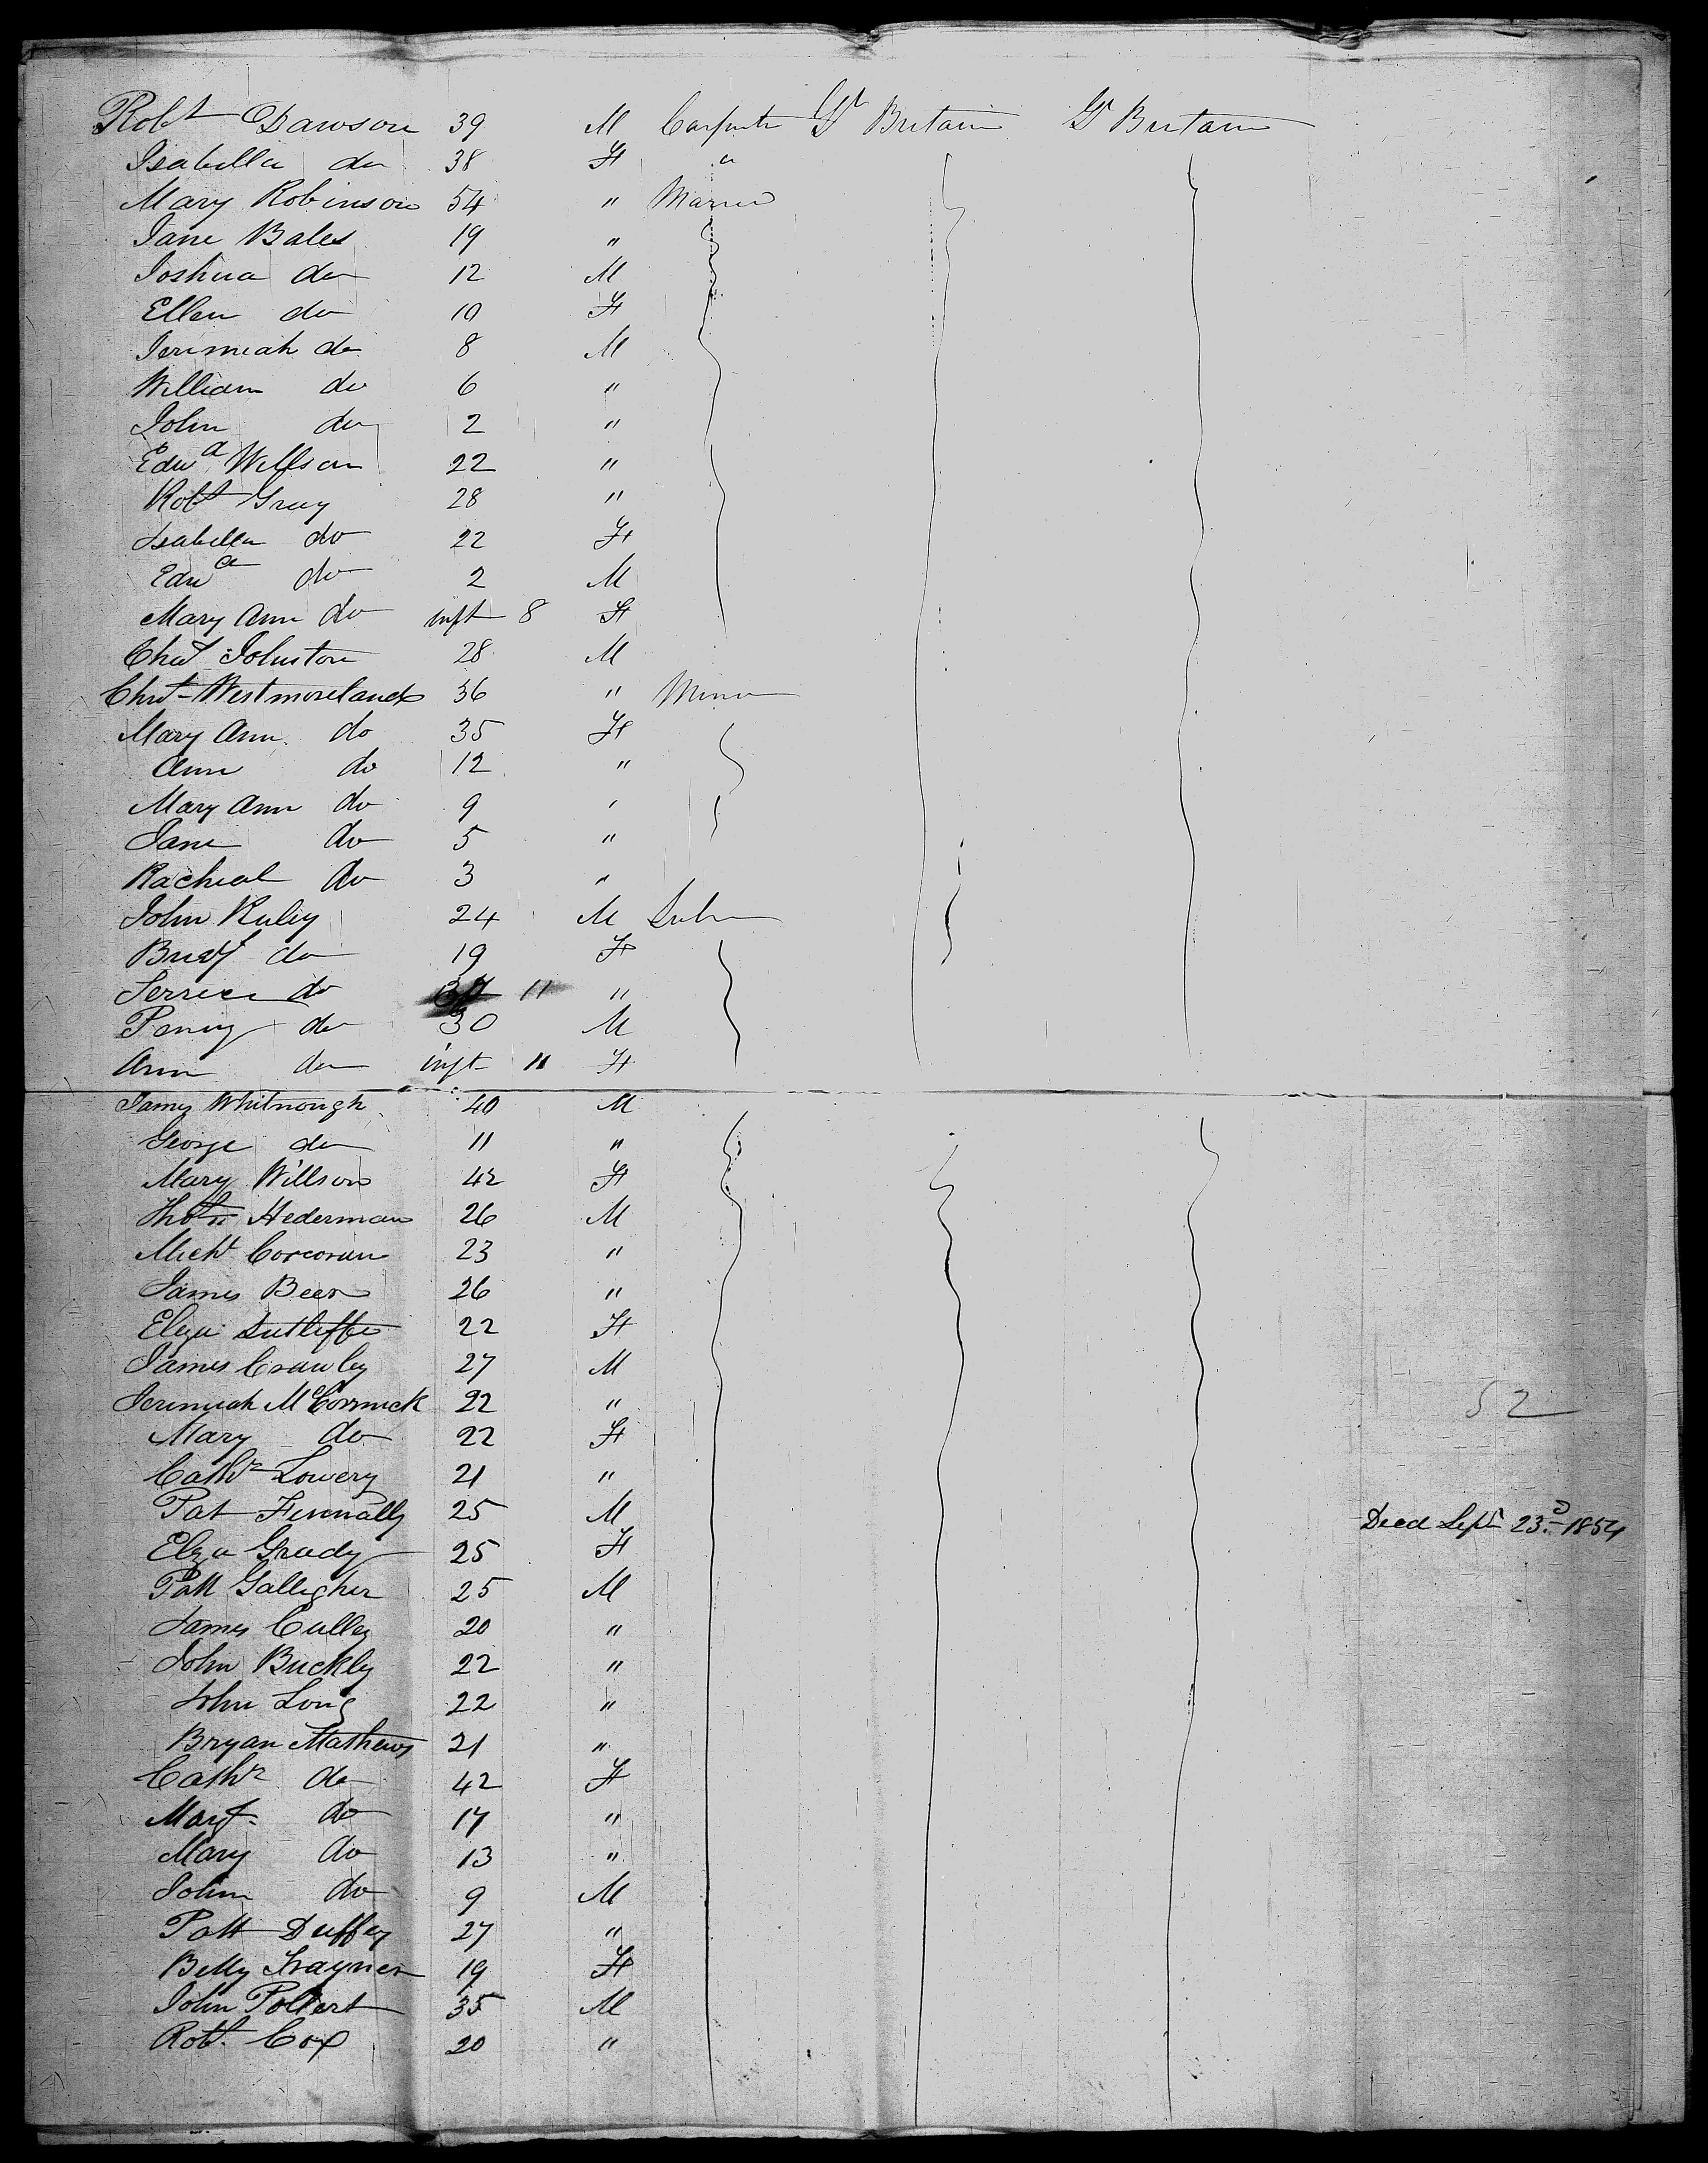 Robt Dawson 39 M Carpenter Gt Britain Gt Britain
Isabella do 38 F "
Mary Robinson 54 "
Jane Bales 19 "
Joshua do 12 M
Ellen do 10 F
Jerimiah do 8 M
William do 6 "
John do 2 "
Edwd Willson 22 "
Robt Gray 28 "
Isabella do 22 F
Edwd do 2 M
Mary Ann do inft 8 F
Chas Johnston 28 M
Christ Westmoreland 36 " Miner
Mary Ann do 35 F
Ann do 12 "
Mary Ann do 9 "
Jane do 5 "
Racheal do 3 "
John Ruley 24 M
Bridgt do 19 F
do "
do 30 M
Ann do inft 11 F
James Whitnough 40 M
George do 11 "
Mary Willson 42 F
Thos Hederman 26 M
Michl Corcoran 23 "
James Beer 26 "
Eliza Sutliffe 22 F
James Crawley 27 M
Jerimiah McCormick 22 "
Mary do 22 F
52
Cathr Lowery 21 "
Pat Finnally 25 M Died Sept 23d 1854
Eliza Grady 25 F
Patt Gallegher 25 M
James Culley 20 "
John Buckly 22 "
John Long 22 "
Bryan Mathews 21 "
Cathr do 42 F
Margt do 17 "
Mary do 13 "
John do 9 M
Patt Duffey 27 "
Betty Traynor 19 F
John Pollert 35 M
Robt Cox 20 "